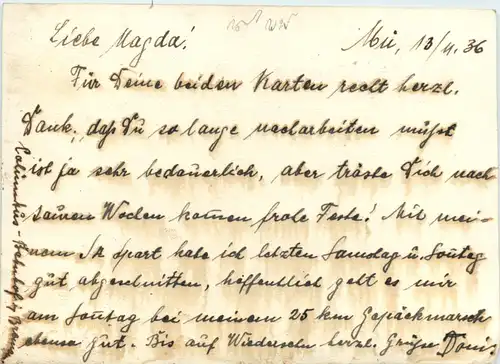 Liebe Magda!
Mü, 13/11. 36
Für Deine beiden Karten recht herzl.
Dank. daß Du so lange nacharbeiten mußt
ist ja sehr bedauerlich, aber tröste Dich nach
sauren Wochen kommen frohe Feste! Mit mei-
nem Sport habe ich letzten Samstag u. Sonntag
gut abgeschnitten, hoffentlich geht es mir
am Sonntag bei meinem 25 km Gepäckmarsch
ebenso gut. Bis auf Wiedersehn herzl. Grüße Doni.